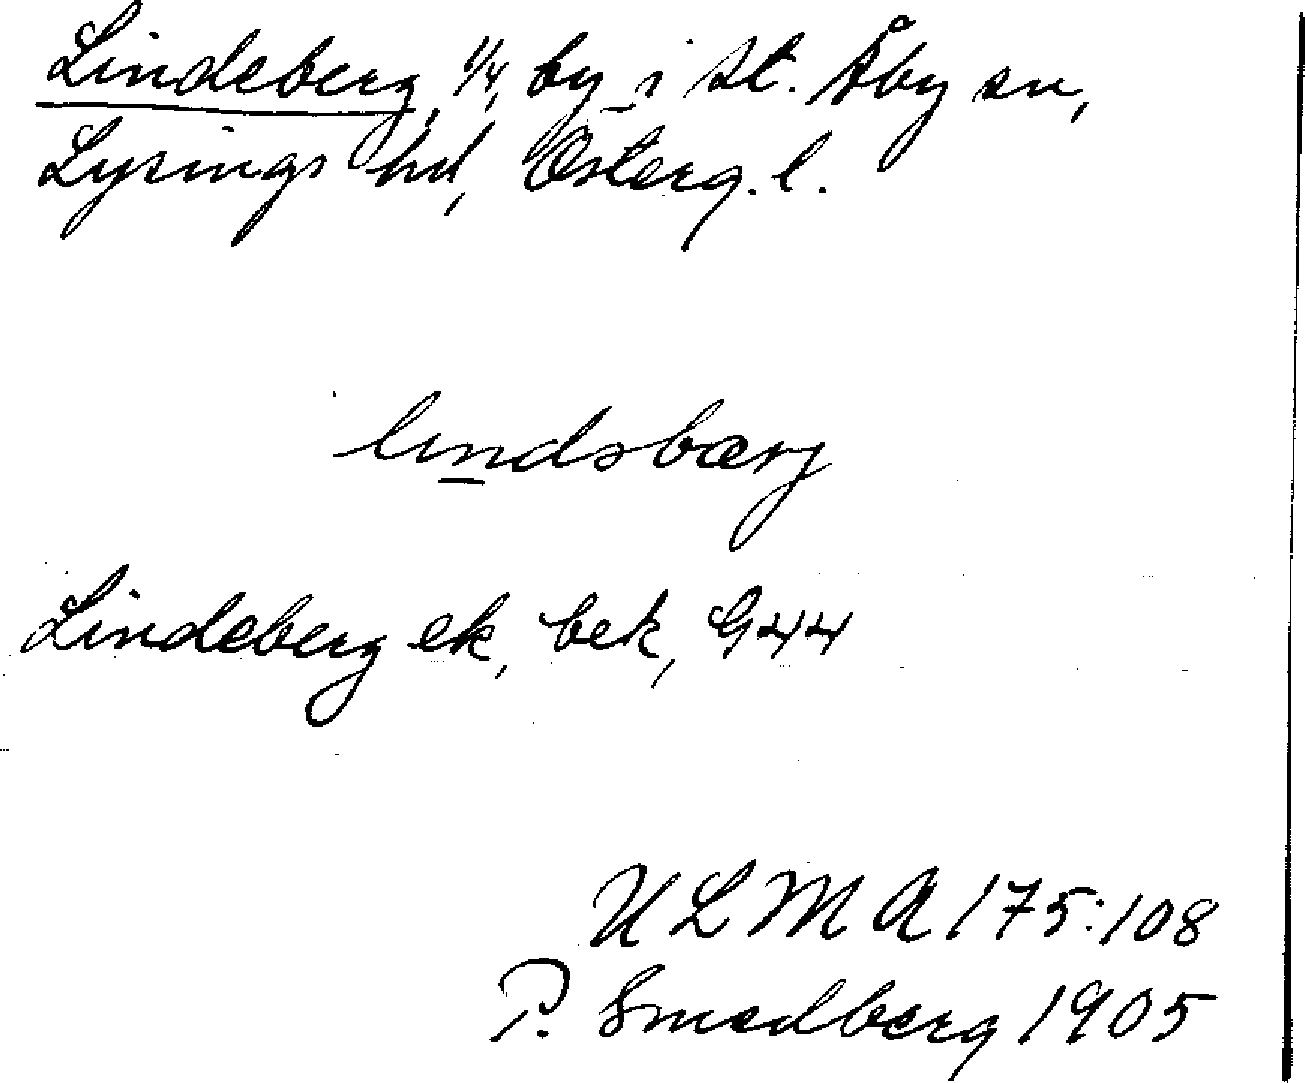 Lindeberg, 1/4, by i St. Åby sn,
Lysings hd, Österg. l.
lindsbærj
Lindeberg ek, bek, G44
ULMA 175:108
P. Smedberg 1905